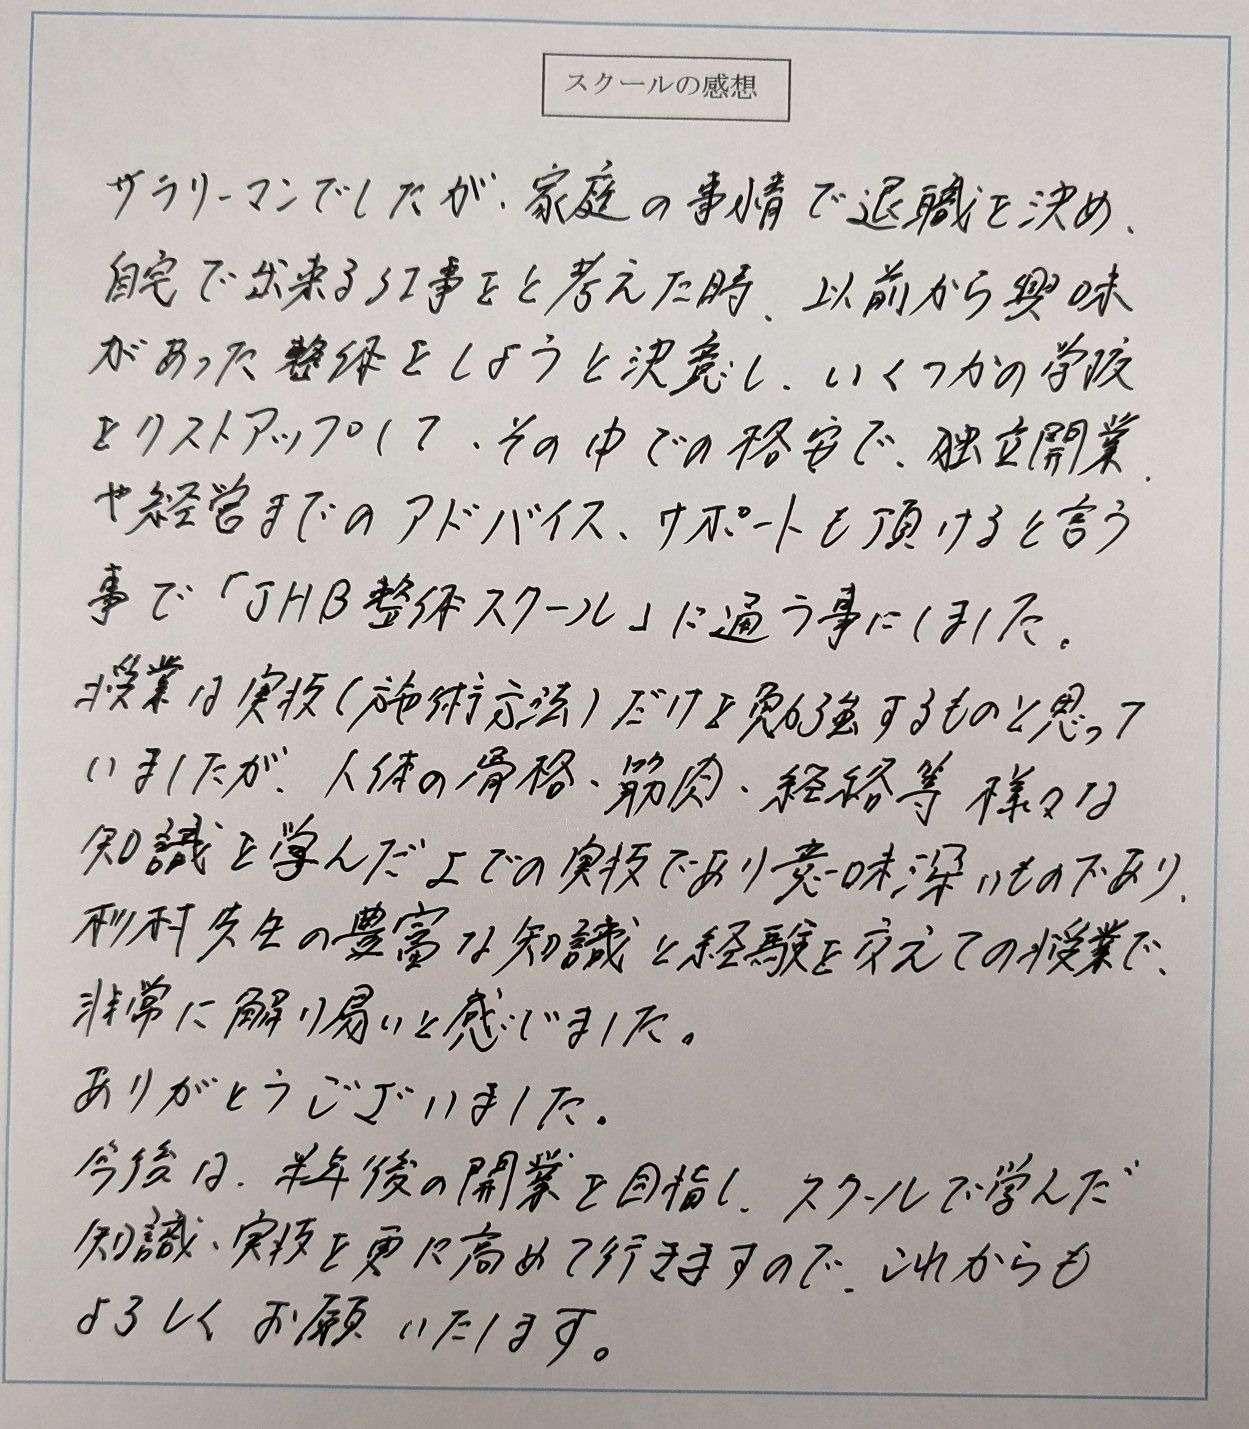 スクールの感想
サラリーマンでしたが、家庭の事情で退職を決め、
自宅で出来る仕事をと考えた時、以前から興味
があった整体をしようと決意し、いくつかの学校
をリストアップして、その中での格安で、独立開業
や経営までのアドバイス、サポートも頂けると言う
事で「JHB整体スクール」に通う事にしました。
授業は実技(施術方法)だけを勉強するものと思って
いましたが、人体の骨格・筋肉・経絡等様々な
知識を学んだ上での実技であり意味深いものであり、
村先生の豊富な知識と経験を交えての授業で、
非常に解り易いと感じました。
ありがとうございました。
今後は、半年後の開業を目指し、スクールで学んだ
知識、実技を更に高めて行きますので、これからも
よろしくお願いいたします。